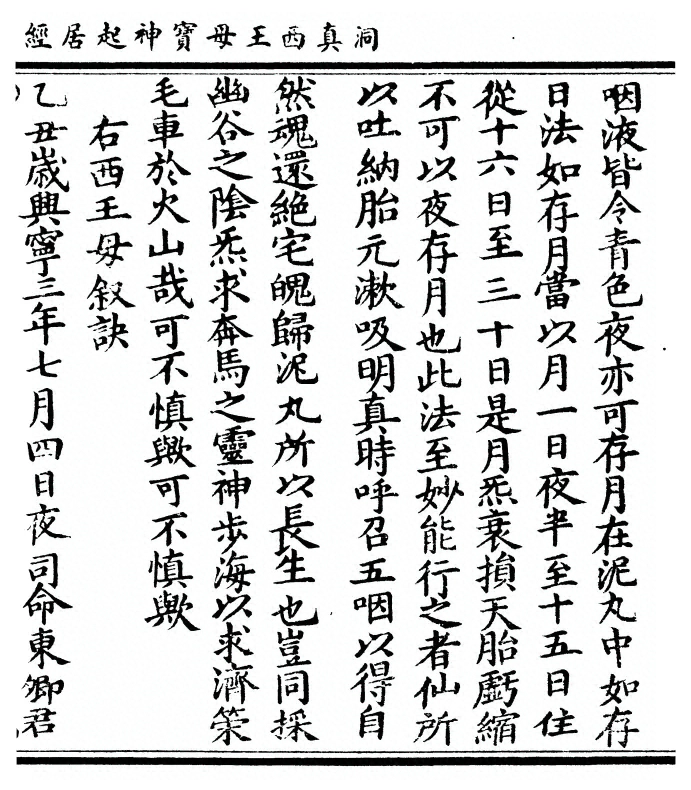 洞真西王母寶神起居經
咽液皆令青色夜亦可存月在泥丸中如存
日法如存月當以月一日夜半至十五日住
從十六日至三十日是月炁衰損天胎虧縮
不可以夜存月也此法至妙能行之者仙所
以吐納胎元漱吸明真時呼召五咽以得自
然魂還絕宅魄歸泥丸所以長生也豈同採
幽谷之陰炁求奔馬之靈神步海以求濟策
毛車於火山哉可不慎歟可不慎歟
右西王母叙訣
乙丑歲興寧三年七月四日夜司命東卿君